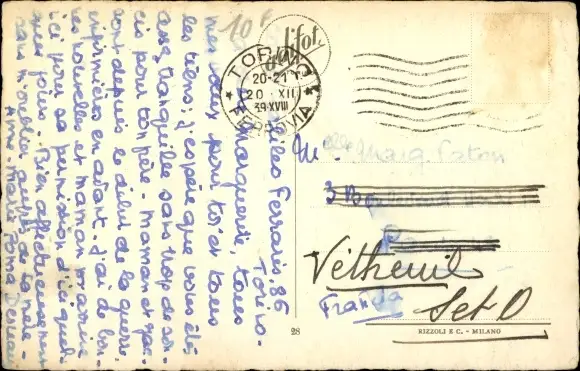 10 F
difot.
TORINO
20-21
20 XII
39·XVIII
FERROVIA
Ferraris, 86
Torino.
Marguerite, tous
mes voeux pour toi et tous
les tiens; j'espère que vous êtes
assez tranquilles sans trop de sou-
cis pour ton père - Maman et
sont depuis le début de la guerre
infirmières en avant, j'ai de bon-
nes nouvelles et maman arrive
ici pour sa permission d'ici quel-
ques jours. Bien affectueusement
sans oublier
Anne-Marie
M
elle
Marg
3
Vétheuil
Franc
S et O
28
RIZZOLI E C. - MILANO